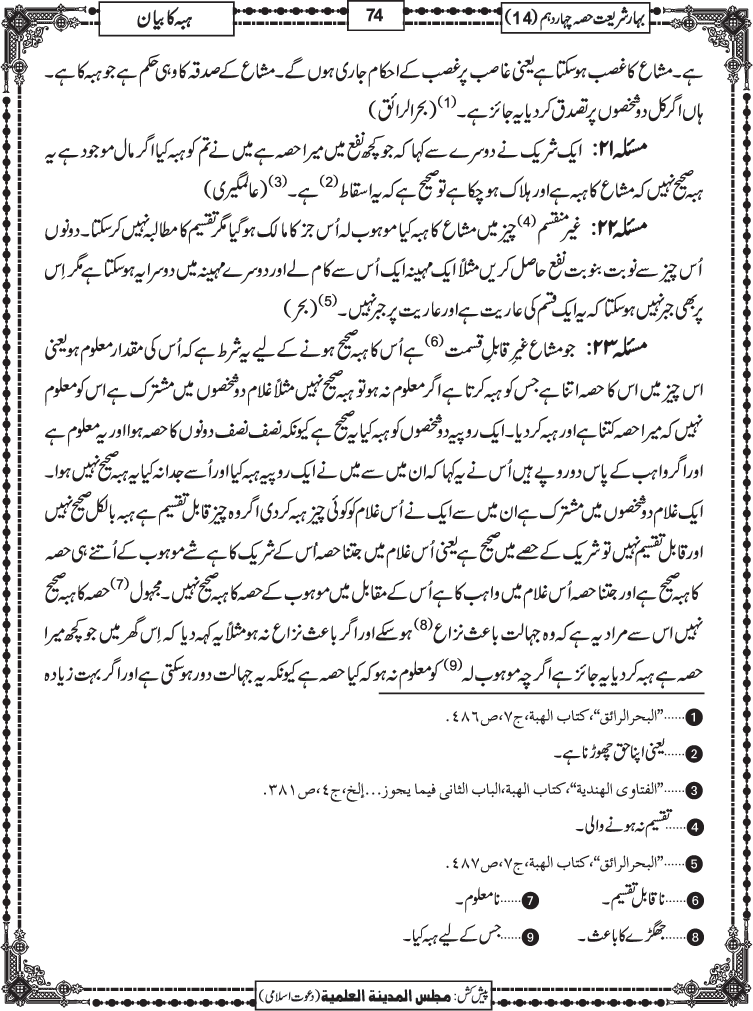 بہار شریعت حصہ چہاردہم (14)
74
ہبہ کا بیان
ہے۔ مشاع کا غصب ہوسکتا ہے یعنی غاصب پر غصب کے احکام جاری ہوں گے۔ مشاع کے صدقہ کا وہی حکم ہے جو ہبہ کا ہے۔
ہاں اگر کل دو شخصوں پر تصدق کردیا یہ جائز ہے۔(1) (بحرالرائق)
مسئلہ ۲۱: ایک شریک نے دوسرے سے کہا کہ جو کچھ نفع میں میرا حصہ ہے میں نے تم کو ہبہ کیا اگر مال موجود ہے یہ
ہبہ صحیح نہیں کہ مشاع کا ہبہ ہے اور ہلاک ہوچکا ہے تو صحیح ہے کہ یہ اسقاط(2) ہے۔(3) (عالمگیری)
مسئلہ ۲۲: غیر منقسم(4) چیز میں مشاع کا ہبہ کیا موہوب لہ اُس جز کا مالک ہوگیا مگر تقسیم کا مطالبہ نہیں کرسکتا۔ دونوں
اُس چیز سے نوبت بنوبت نفع حاصل کریں مثلاً ایک مہینہ ایک اُس سے کام لے اور دوسرے مہینہ میں دوسرا یہ ہوسکتا ہے مگر اِس
پر بھی جبر نہیں ہوسکتا کہ یہ ایک قسم کی عاریت ہے اور عاریت پر جبر نہیں۔(5) (بحر)
مسئلہ ۲۳: جو مشاع غیرِ قابلِ قسمت(6) ہے اُس کا ہبہ صحیح ہونے کے لیے یہ شرط ہے کہ اُس کی مقدار معلوم ہو یعنی
اس چیز میں اس کا حصہ اتنا ہے جس کو ہبہ کرتا ہے اگر معلوم نہ ہو تو ہبہ صحیح نہیں مثلاً غلام دو شخصوں میں مشترک ہے اس کو معلوم
نہیں کہ میرا حصہ کتنا ہے اور ہبہ کردیا۔ ایک روپیہ دو شخصوں کو ہبہ کیا یہ صحیح ہے کیونکہ نصف نصف دونوں کا حصہ ہوا اور یہ معلوم ہے
اور اگر واہب کے پاس دو روپے ہیں اُس نے یہ کہا کہ ان میں سے میں نے ایک روپیہ ہبہ کیا اور اُسے جدا نہ کیا یہ ہبہ صحیح نہیں ہوا۔
ایک غلام دو شخصوں میں مشترک ہے ان میں سے ایک نے اُس غلام کو کوئی چیز ہبہ کردی اگر وہ چیز قابل تقسیم ہے ہبہ بالکل صحیح نہیں
اور قابل تقسیم نہیں تو شریک کے حصے میں صحیح ہے یعنی اُس غلام میں جتنا حصہ اُس کے شریک کا ہے شے موہوب کے اُتنے ہی حصہ
کا ہبہ صحیح ہے اور جتنا حصہ اُس غلام میں واہب کا ہے اُس کے مقابل میں موہوب کے حصہ کا ہبہ صحیح نہیں۔ مجہول(7) حصہ کا ہبہ صحیح
نہیں اس سے مراد یہ ہے کہ وہ جہالت باعث نزاع(8) ہوسکے اور اگر باعث نزاع نہ ہو مثلاً یہ کہہ دیا کہ اِس گھر میں جو کچھ میرا
حصہ ہے ہبہ کردیا یہ جائز ہے اگرچہ موہوب لہ(9) کو معلوم نہ ہو کہ کیا حصہ ہے کیونکہ یہ جہالت دور ہوسکتی ہے اور اگر بہت زیادہ
1......"البحرالرائق"، کتاب الھبة، ج۷، ص۴۸۶.
2......یعنی اپنا حق چھوڑنا ہے۔
3......"الفتاوی الھندیة"، کتاب الھبة، الباب الثانی فیما یجوز...إلخ، ج۴، ص۳۸۱.
4......تقسیم نہ ہونے والی۔
5......"البحرالرائق"، کتاب الھبة، ج۷، ص۴۸۷.
6......ناقابل تقسیم۔ 7......نامعلوم۔
8......جھگڑے کا باعث۔ 9......جس کے لیے ہبہ کیا۔
پیش کش: مجلس المدینة العلمیة (دعوت اسلامی)